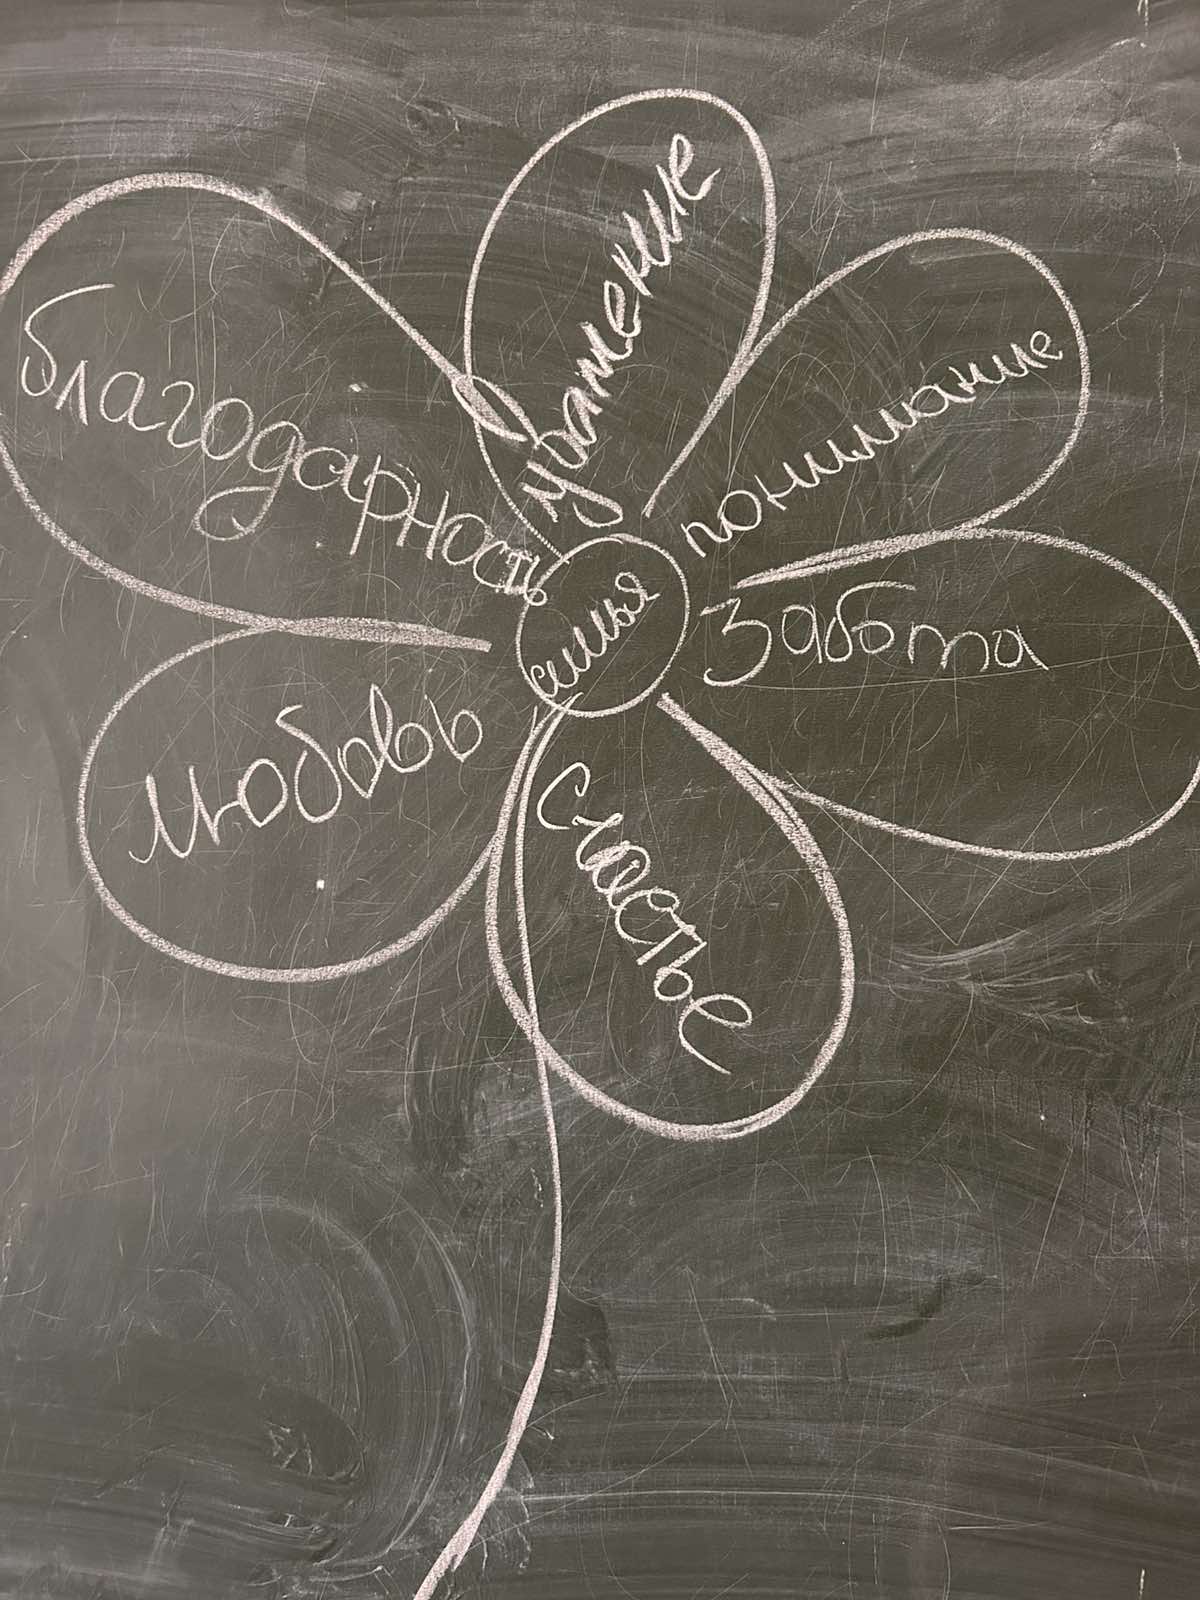 уважение
благодарность
понимание
семья
забота
любовь
счастье